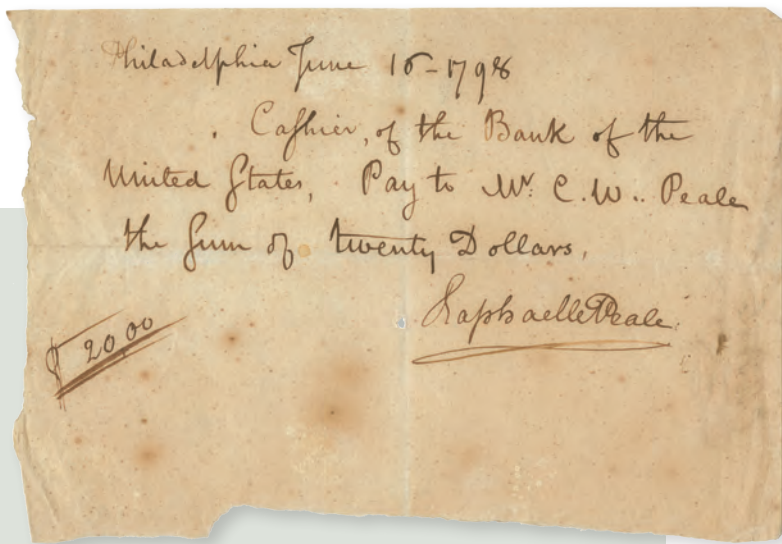 Philadelphia June 16-1798
. Cashier, of the Bank of the
United States, Pay to Mr. C.W.. Peale
the Sum of twenty Dollars,
Raphaelle Peale.
$ 20,00